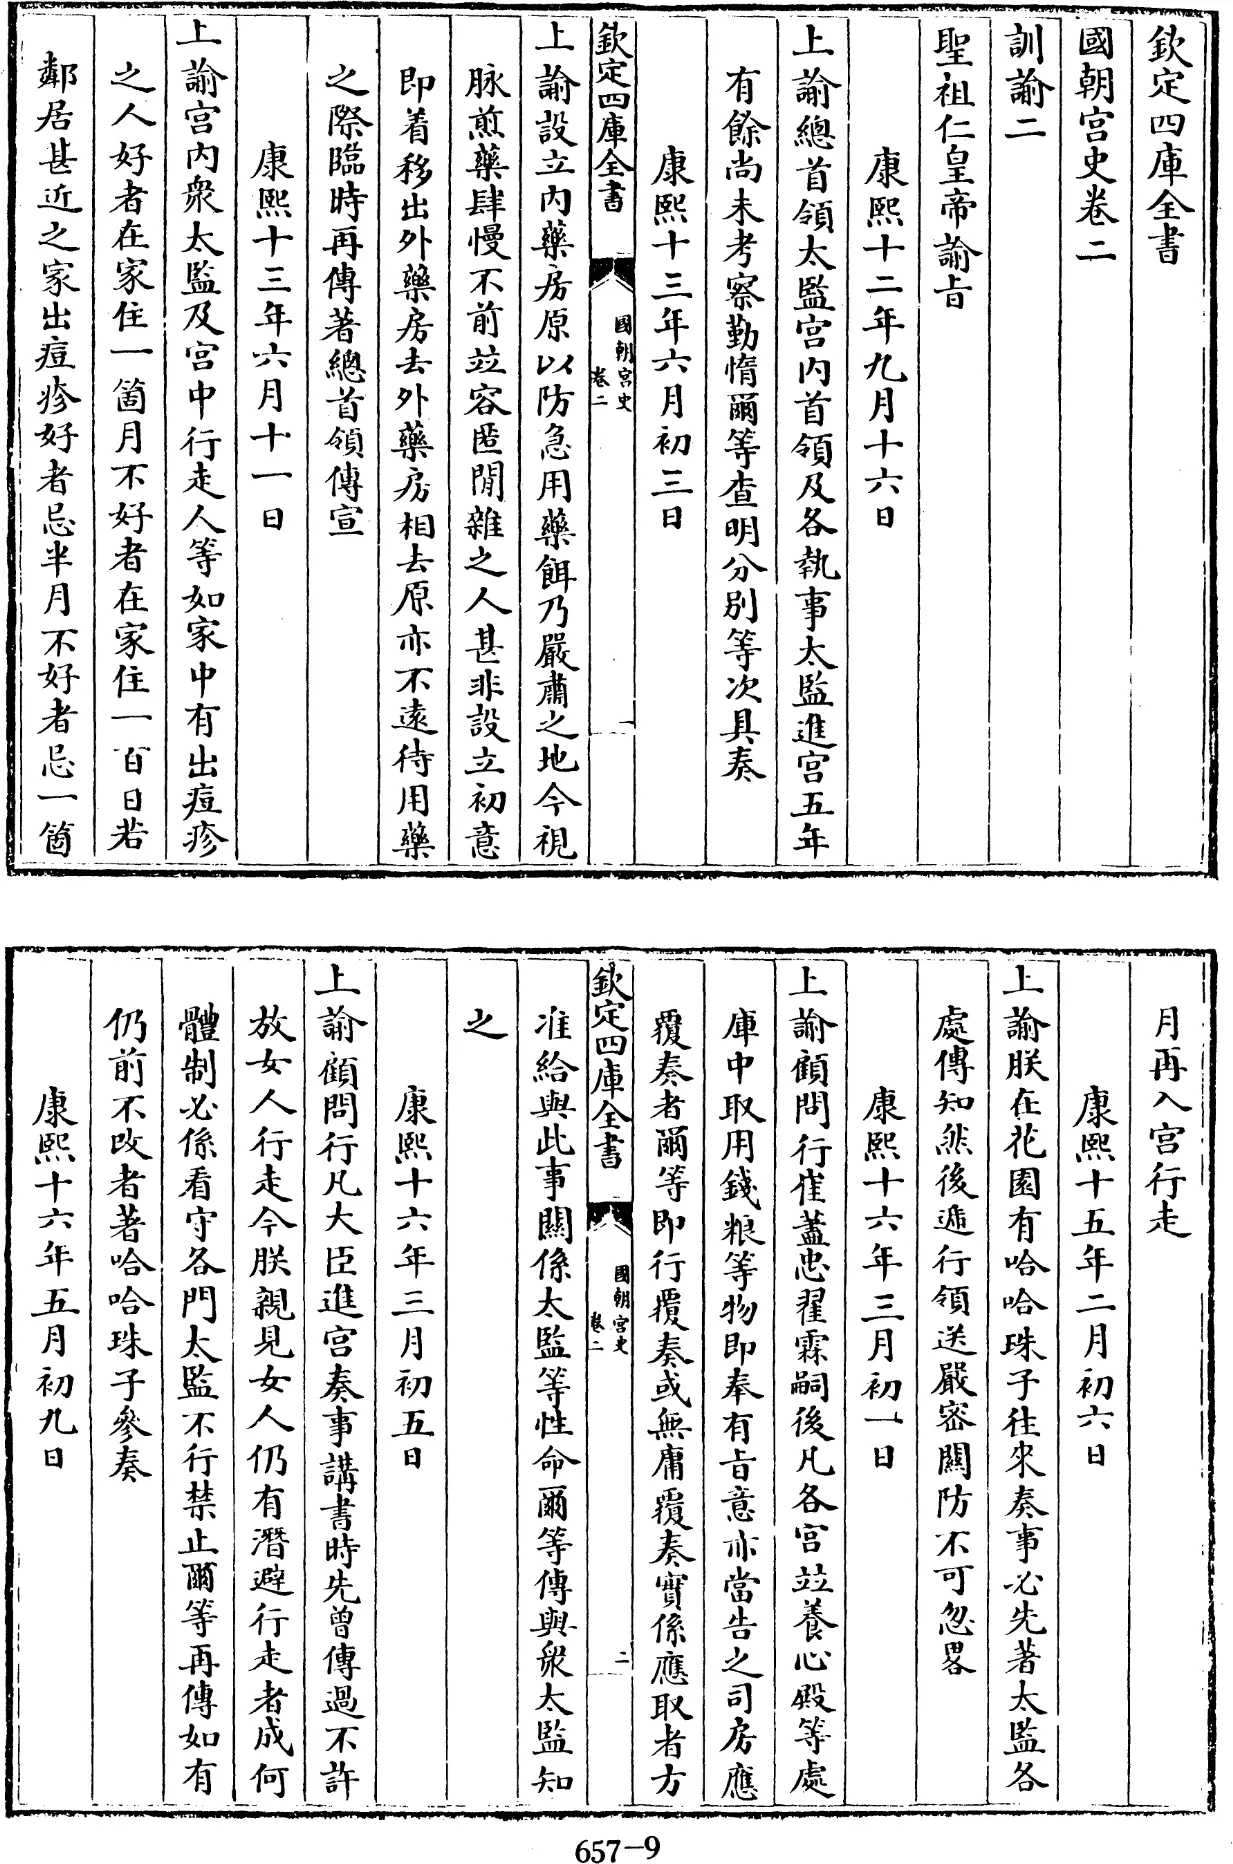 欽定四庫全書
國朝宫史卷二
訓諭二
聖祖仁皇帝諭旨
康熙十二年九月十六日
上諭總首領太監宫内首領及各執事太監進宫五年
有餘尚未考察勤惰爾等查明分别等次具奏
康熙十三年六月初三日
欽定四庫全書
國朝宫史
卷二
一
上諭設立内藥房原以防急用藥餌乃嚴肅之地今視
脉煎藥肆慢不前竝容匿閒雜之人甚非設立初意
即着移出外藥房去外藥房相去原亦不遠待用藥
之際臨時再傳著總首領傳宣
康熙十三年六月十一日
上諭宫内衆太監及宫中行走人等如家中有出痘疹
之人好者在家住一箇月不好者在家住一百日若
鄰居甚近之家出痘疹好者忌半月不好者忌一箇
月再入宫行走
康熙十五年二月初六日
上諭朕在花園有哈哈珠子往來奏事必先著太監各
處傳知然後遞行領送嚴密關防不可忽畧
康熙十六年三月初一日
上諭顧問行崔蓋忠翟霖嗣後凡各宫竝養心殿等處
庫中取用錢粮等物即奉有旨意亦當告之司房應
覆奏者爾等即行覆奏或無庸覆奏實係應取者方
欽定四庫全書
國朝宫史
卷二
二
准給與此事關係太監等性命爾等傳與衆太監知
之
康熙十六年三月初五日
上諭顧問行凡大臣進宫奏事講書時先曾傳過不許
放女人行走今朕親見女人仍有潛避行走者成何
體制必係看守各門太監不行禁止爾等再傳如有
仍前不改者著哈哈珠子參奏
康熙十六年五月初九日
657-9